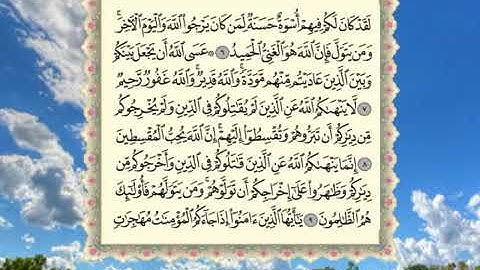 لَقَدْ كَانَ لَكُمْ فِيهِمْ أُسْوَةٌ حَسَنَةٌ لِّمَن كَانَ يَرْجُوا۟ ٱللَّهَ وَٱلْيَوْمَ ٱلْـَٔاخِرَ ۚ
وَمَن يَتَوَلَّ فَإِنَّ ٱللَّهَ هُوَ ٱلْغَنِىُّ ٱلْحَمِيدُ ٦ ۞ عَسَى ٱللَّهُ أَن يَجْعَلَ بَيْنَكُمْ
وَبَيْنَ ٱلَّذِينَ عَادَيْتُم مِّنْهُم مَّوَدَّةً ۚ وَٱللَّهُ قَدِيرٌ ۚ وَٱللَّهُ غَفُورٌ رَّحِيمٌ
٧ لَّا يَنْهَىٰكُمُ ٱللَّهُ عَنِ ٱلَّذِينَ لَمْ يُقَـٰتِلُوكُمْ فِى ٱلدِّينِ وَلَمْ يُخْرِجُوكُم
مِّن دِيَـٰرِكُمْ أَن تَبَرُّوهُمْ وَتُقْسِطُوٓا۟ إِلَيْهِمْ ۚ إِنَّ ٱللَّهَ يُحِبُّ ٱلْمُقْسِطِينَ
٨ إِنَّمَا يَنْهَىٰكُمُ ٱللَّهُ عَنِ ٱلَّذِينَ قَـٰتَلُوكُمْ فِى ٱلدِّينِ وَأَخْرَجُوكُم مِّن
دِيَـٰرِكُمْ وَظَـٰهَرُوا۟ عَلَىٰٓ إِخْرَاجِكُمْ أَن تَوَلَّوْهُمْ ۚ وَمَن يَتَوَلَّهُمْ فَأُو۟لَـٰٓئِكَ
هُمُ ٱلظَّـٰلِمُونَ ٩ يَـٰٓأَيُّهَا ٱلَّذِينَ ءَامَنُوٓا۟ إِذَا جَآءَكُمُ ٱلْمُؤْمِنَـٰتُ مُهَـٰجِرَٰتٍ